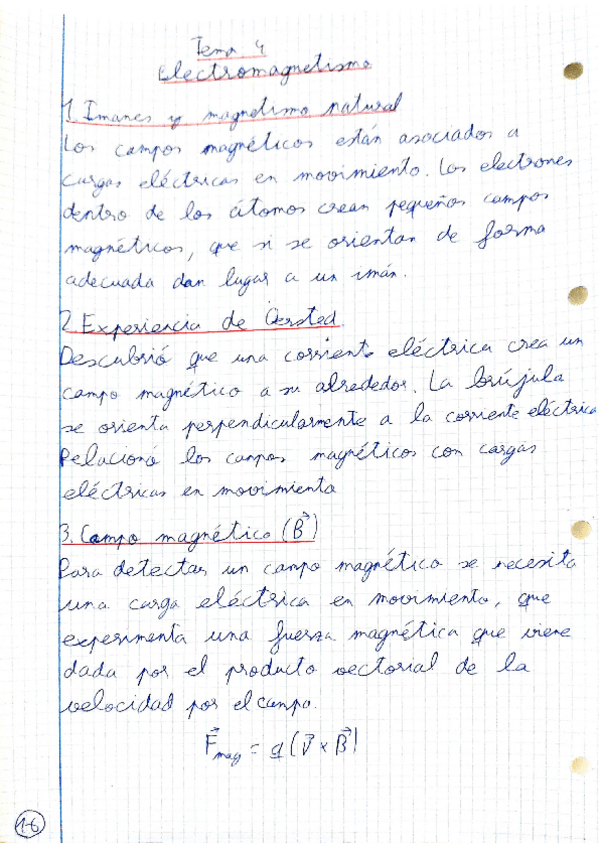 Tema 4
Electromagnetismo
1. Imanes y magnetismo natural
Los campos magnéticos están asociados a
cargas eléctricas en movimiento. Los electrones
dentro de los átomos crean pequeños campos
magnéticos, que si se orientan de forma
adecuada dan lugar a un imán.
2. Experiencia de Oersted.
Descubrió que una corriente eléctrica crea un
campo magnético a su alrededor. La brújula
se orienta perpendicularmente a la corriente eléctrica
Relacionó los campos magnéticos con cargas
eléctricas en movimiento
3. Campo magnético (B⃗)
Para detectar un campo magnético se necesita
una carga eléctrica en movimiento, que
experimenta una fuerza magnética que viene
dada por el producto vectorial de la
velocidad por el campo.
F⃗mag = q (V⃗ × B⃗)
1-6